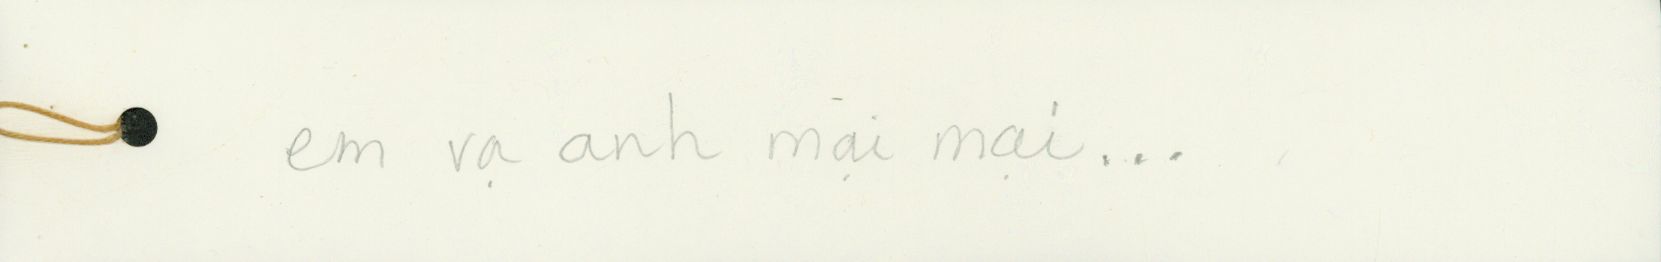 em vạ anh mại mại...